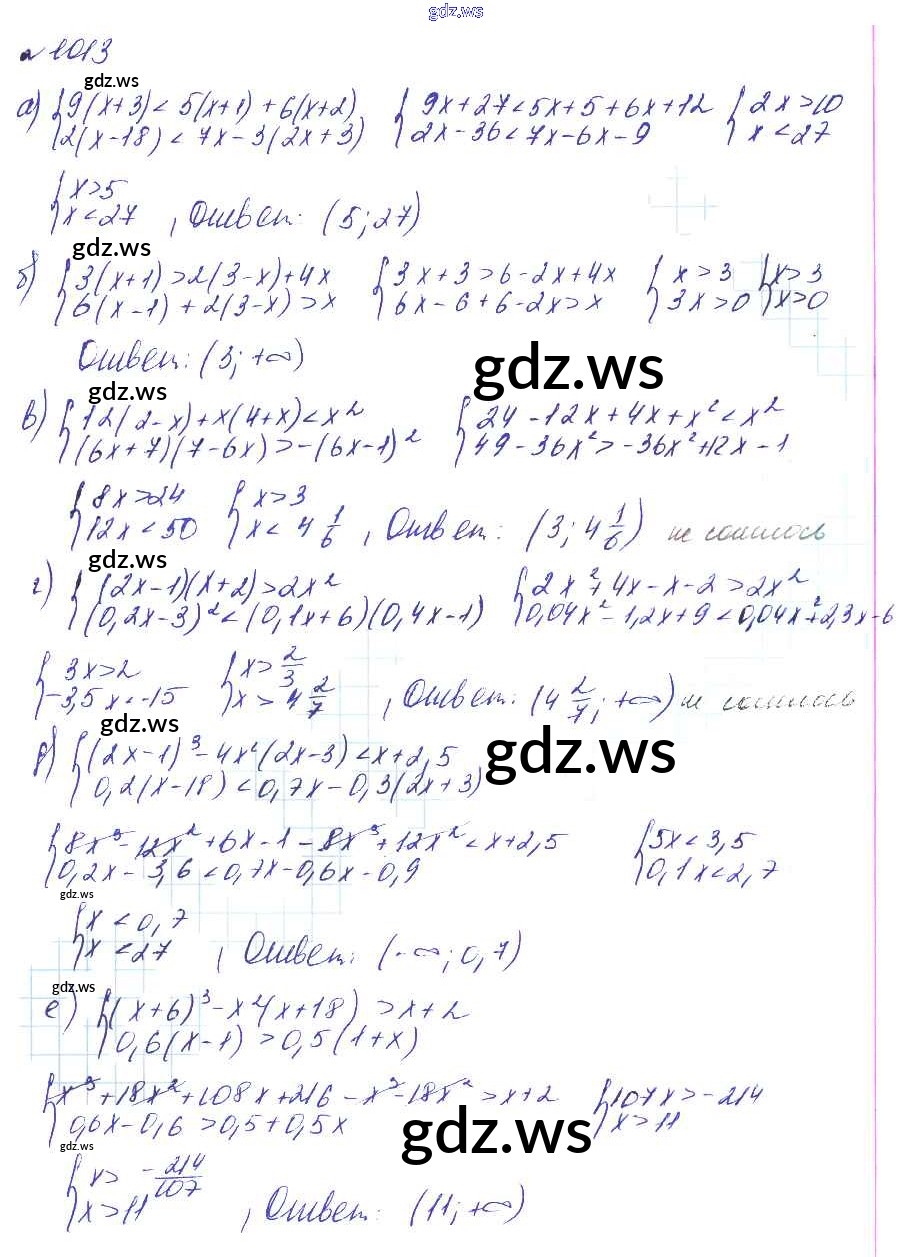 gdz.ws
№1013
gdz.ws
а) { 9(x+3) < 5(x+1) + 6(x+2) { 9x+27<5x+5+6x+12 { 2x>10
2(x-18) < 7x-3(2x+3) 2x-36<7x-6x-9 x<27
{ x>5
x<27 , Ответ: (5;27)
gdz.ws
б) { 3(x+1)>2(3-x)+4x { 3x+3>6-2x+4x { x>3 { x>3
6(x-1)+2(3-x)>x 6x-6+6-2x>x 3x>0 x>0
Ответ: (3;+∞)
gdz.ws
gdz.ws
в) { 12(2-x)+x(4+x)<x² { 24-12x+4x+x²<x²
(6x+7)(7-6x)>-(6x-1)² 49-36x²>-36x²+12x-1
{ 8x>24 { x>3
12x<50 x<4 1/6 , Ответ: (3; 4 1/6) не сошлось
gdz.ws
г) { (2x-1)(x+2)>2x² { 2x²+4x-x-2>2x²
(0,2x-3)²<(0,1x+6)(0,4x-1) 0,04x²-1,2x+9<0,04x²+2,3x-6
{ 3x>2 { x>2/3
-3,5x<-15 x>4 2/7 , Ответ: (4 2/7; +∞) не сошлось
gdz.ws
gdz.ws
д) { (2x-1)³-4x²(2x-3)<x+2,5
0,2(x-18)<0,7x-0,3(2x+3)
{ 8x³-12x²+6x-1-8x³+12x²<x+2,5 { 5x<3,5
0,2x-3,6<0,7x-0,6x-0,9 0,1x<2,7
gdz.ws
{ x<0,7
x<27 , Ответ: (-∞;0,7)
gdz.ws
е) { (x+6)³-x²(x+18)>x+2
0,6(x-1)>0,5(1+x)
{ x³+18x²+108x+216-x³-18x²>x+2 { 107x>-214
0,6x-0,6>0,5+0,5x x>11
gdz.ws
gdz.ws
{ x>-214/107
x>11 , Ответ: (11;+∞)